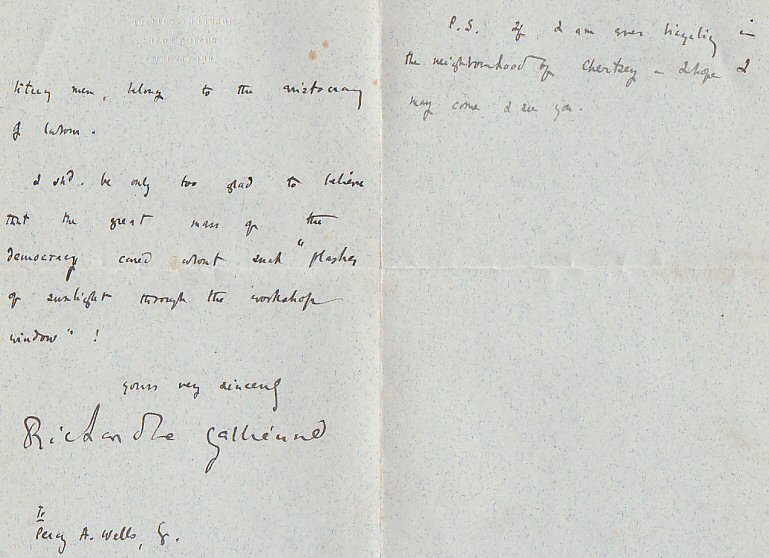 men, belong to the aristocracy
of labour.
I shd. be only too glad to believe
that the great mass of the
democracy cared about such "flashes
of sunlight through the workshop
window"!
yours very sincerely
Richard Le Gallienne
To
Percy A. Wells, Esq.
P.S. If I am ever bicycling in
the neighbourhood of Chertsey – I hope I
may come & see you.